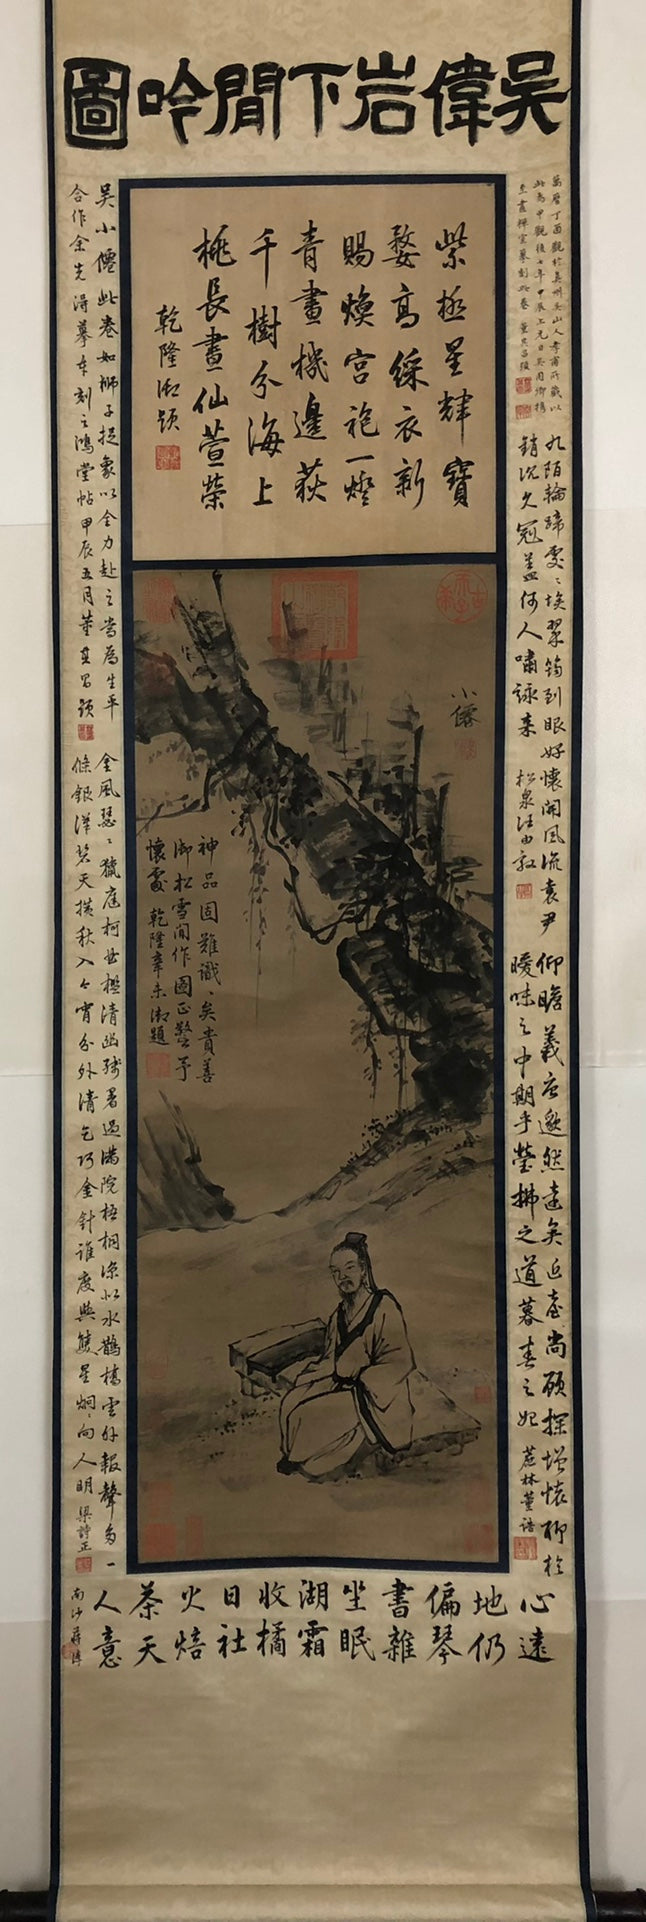 吳偉岩下閒吟圖
紫極星輝寶
婺高綵衣新
賜煥宮袍一燈
青晝機邊荻
千樹分海上
桃長晝仙萱榮
乾隆御題
萬曆丁酉觀於吳山人孝甫所藏以
此為甲觀後七年甲辰上元日吳周
至畫禪室摹刻此卷 董其昌題
九陌輪蹄處處埃翠筠到眼好懷開風流袁尹
銷沉久冠蓋何人嘯詠來 松泉汪由敦
仰瞻羲唐邈然遠矣近臺尚顧探增懷聊於
曖昧之中期乎瑩拂之道暮春之 蔗林董誥
小僊
神品固難識識矣貴善
御松雪閒作圖正繄予
懷處 乾隆辛未御題
吳小僊此卷如獅子捉象以全力赴之當為生平
合作余先得摹本刻之鴻堂帖甲辰五月董其昌題
金風瑟瑟獵庭柯世檻清幽殘暑過滿院梧桐涼似水鵲橋雲外報聲多一
條銀漢碧天橫秋入今宵分外清乞巧金針誰度與雙星炯炯向人明 梁詩正
心遠
地仍
偏琴
書雜
坐眠
湖霜
收橘
日社
火焙
茶天
人意
南沙蔣溥